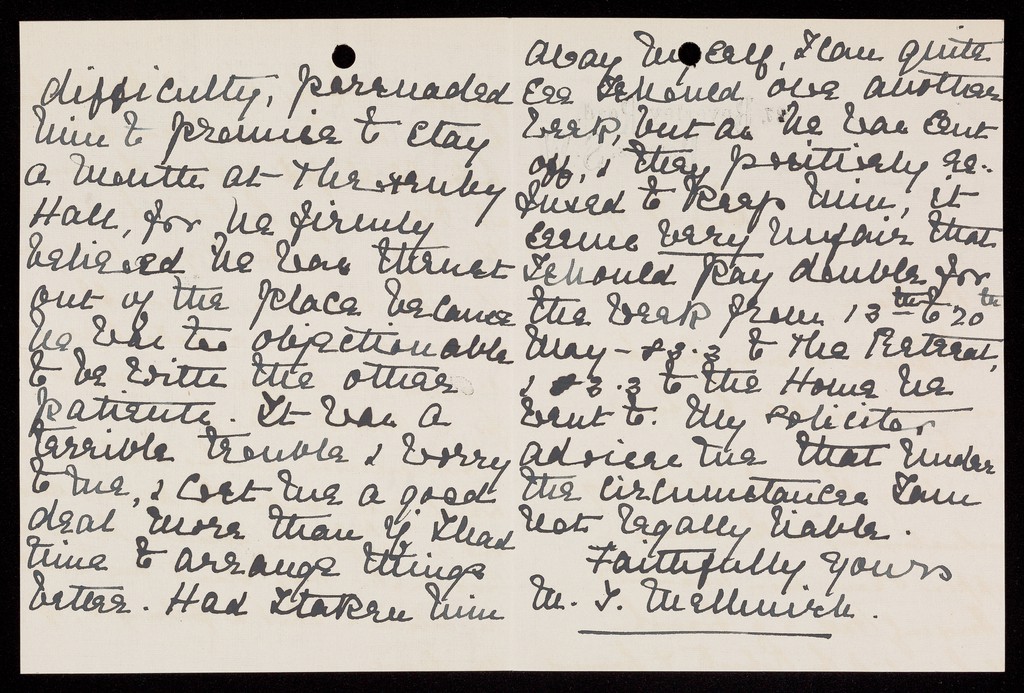 difficulty, persuaded
him to promise to stay
a month at
Hall, for he firmly
believed he was thrust
out of the place because
he was too objectionable
to be with the other
patients. It was a
terrible trouble & worry
to me, & cost me a good
deal more than if I had
time to arrange things
better. Had I taken him
away myself, I can quite
see I should owe another
week, but as he was sent
off, & they positively re-
fused to keep him, it
seems very unfair that
I should pay double for
the week from 13th to 20th
May - £3.3 to The Retreat,
& £3.3 to the Home he
went to. My solicitor
advises me that under
the circumstances I am
not legally liable.
Faithfully yours
M. I.